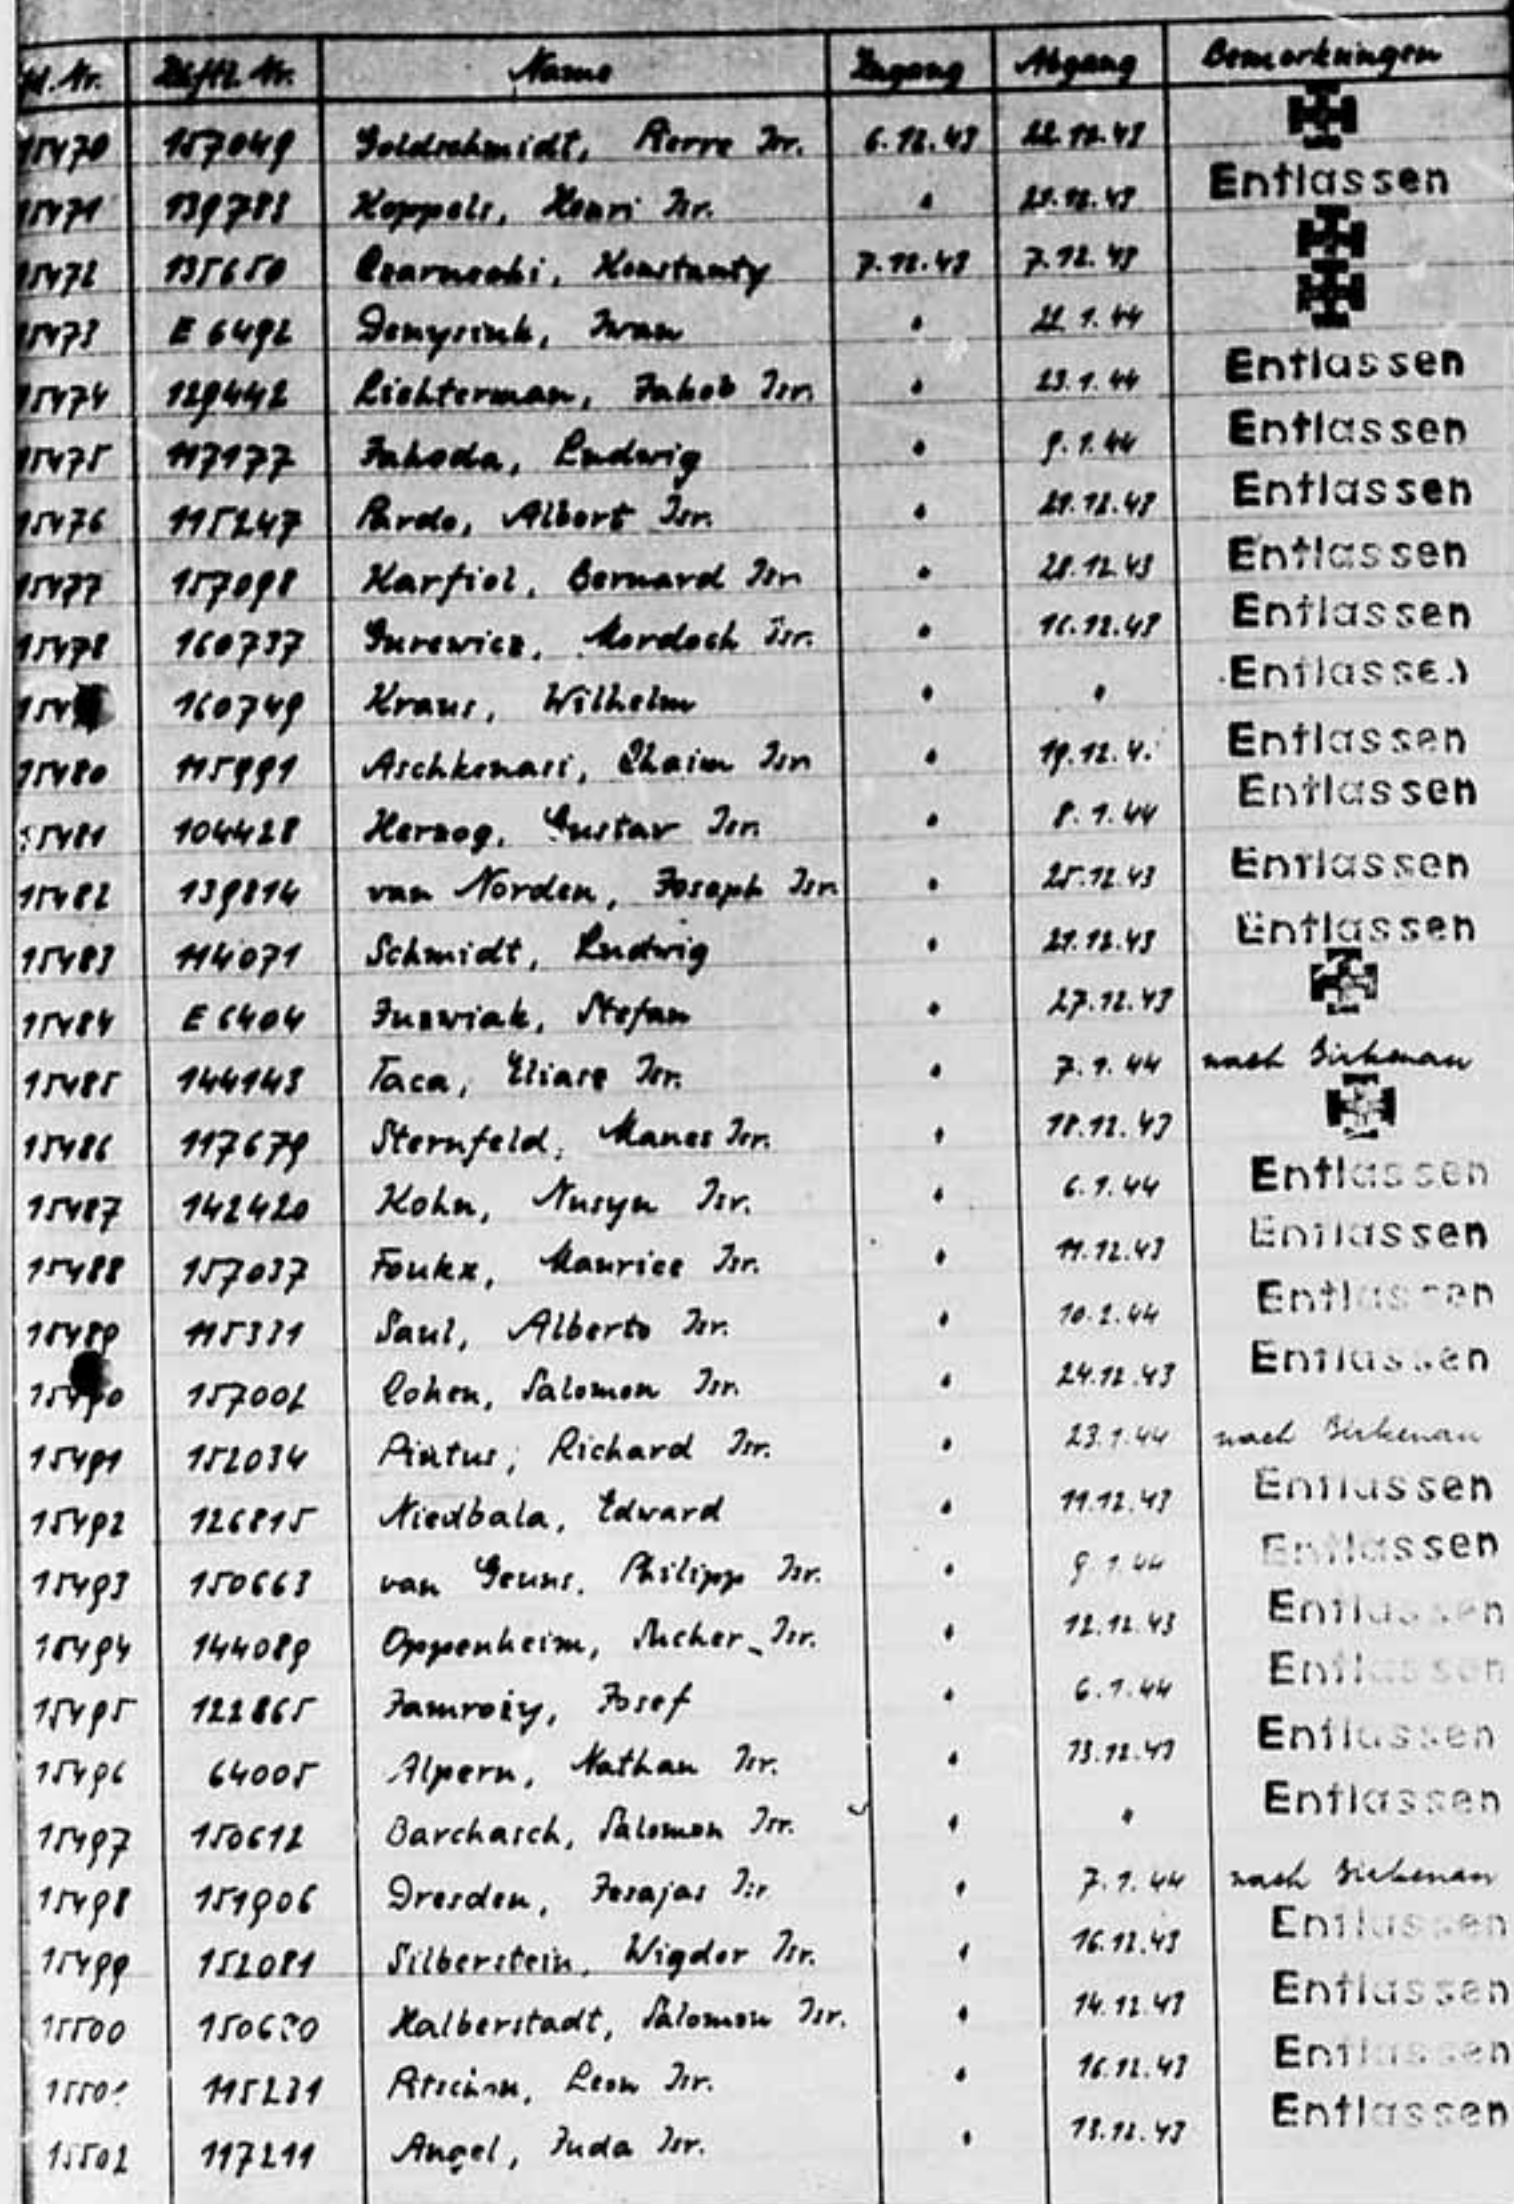 Lfd. Nr. Häftl. Nr. Name Zugang Abgang Bemerkungen
15470 157049 Goldschmidt, Pierre Isr. 6.12.43 22.12.43
15471 139783 Koppels, Henri Isr. " 21.12.43 Entlassen
15472 135650 Czarnecki, Konstanty 7.12.43 7.12.43
15473 E 6492 Demysiuk, Iwan " 22.1.44
15474 129442 Lichterman, Jakob Isr. " 23.1.44 Entlassen
15475 117177 Jahoda, Ludwig " 9.1.44 Entlassen
15476 115247 Pardo, Albert Isr. " 21.12.43 Entlassen
15477 157098 Karfiol, Bernard Isr. " 28.12.43 Entlassen
15478 160737 Gurewicz, Mordoch Isr. " 16.12.43 Entlassen
160749 Kraus, Wilhelm " " Entlassen
15480 115991 Aschkenasi, Chaim Isr. " 19.12.4 Entlassen
15481 104428 Herzog, Gustav Isr. " 8.1.44 Entlassen
15482 139814 van Norden, Joseph Isr. " 25.12.43 Entlassen
15483 114071 Schmidt, Ludwig " 21.12.43 Entlassen
15484 E 6404 Juzwiak, Stefan " 27.12.43
15485 144143 Taca, Eliare Isr. " 7.1.44 nach Birkenau
15486 117679 Sternfeld, Manes Isr. " 18.12.43
15487 142420 Kohn, Nusyn Isr. " 6.1.44 Entlassen
15488 157037 Foukx, Maurice Isr. " 11.12.43 Entlassen
15489 115331 Saul, Alberto Isr. " 10.2.44 Entlassen
15490 157002 Cohen, Salomon Isr. " 24.12.43 Entlassen
15491 152034 Pintus, Richard Isr. " 23.1.44 nach Birkenau
15492 126815 Niedbala, Edward " 11.12.43 Entlassen
15493 150663 van Geuns, Philipp Isr. " 9.1.44 Entlassen
15494 144089 Oppenheim, Sucher Isr. " 12.12.43 Entlassen
15495 122865 Jamroży, Josef " 6.1.44 Entlassen
15496 64005 Alpern, Nathan Isr. " 13.12.43 Entlassen
15497 150612 Barchasch, Salomon Isr. " " Entlassen
15498 151906 Dresden, Jesajas Isr " 7.1.44 nach Birkenau
15499 152081 Silberstein, Wigdor Isr. " 16.12.43 Entlassen
15500 150620 Halberstadt, Salomon Isr. " 14.12.43 Entlassen
15501 115231 Leon Isr. " 16.12.43 Entlassen
15502 117211 Angel, Juda Isr. " 13.12.43 Entlassen